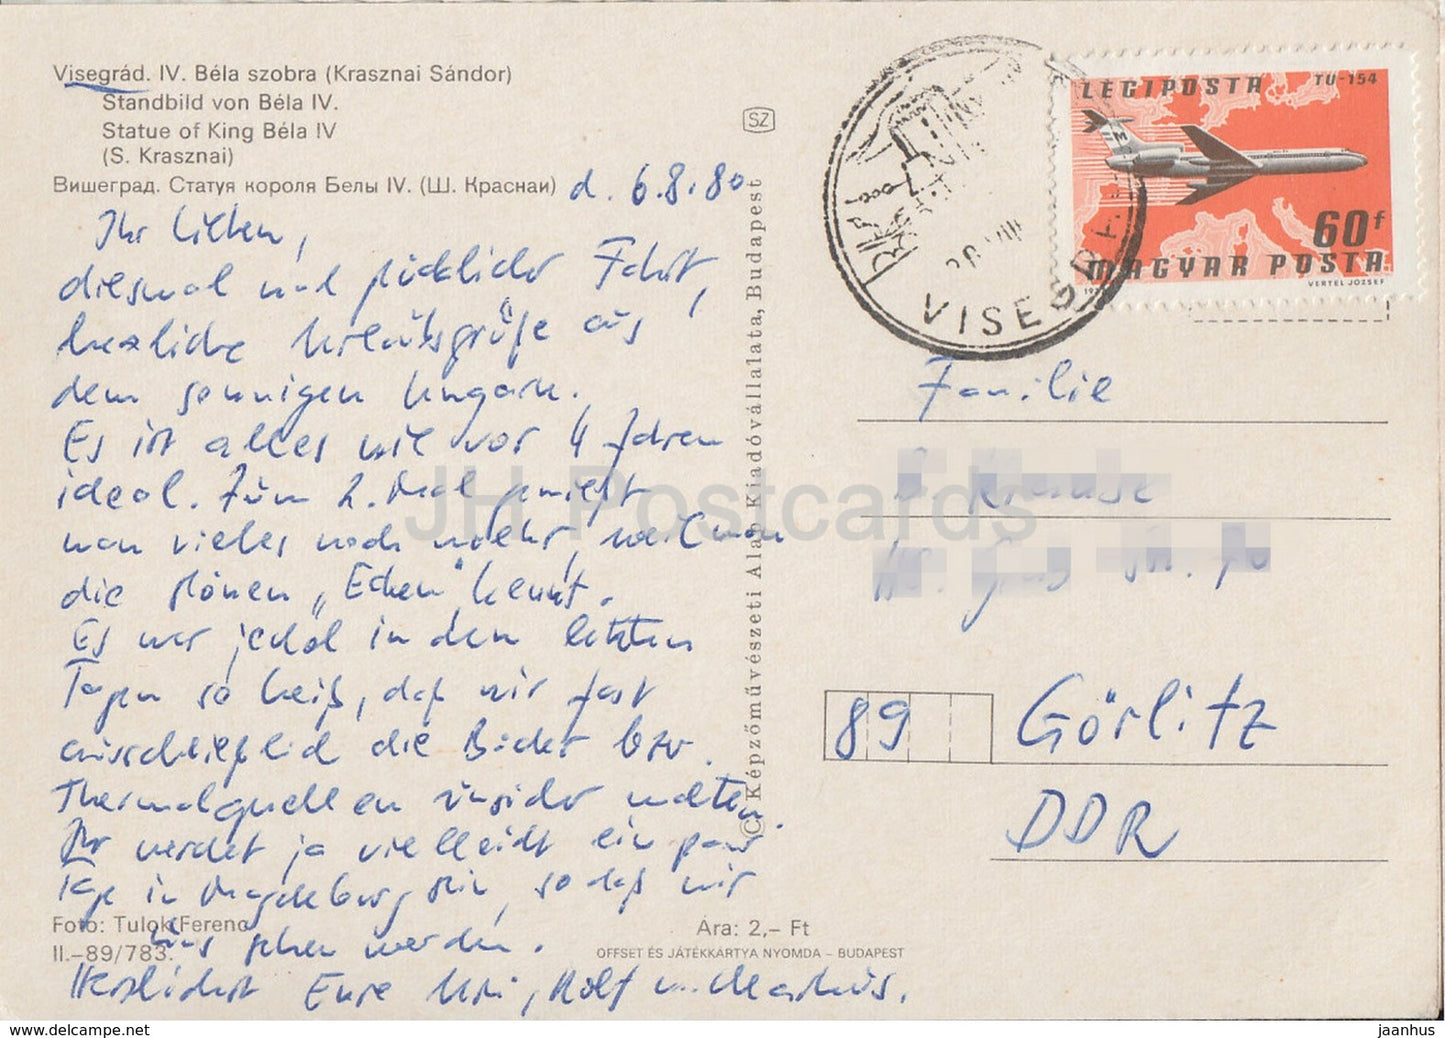 Visegrád. IV. Béla szobra (Krasznai Sándor)
Standbild von Béla IV.
Statue of King Béla IV
(S. Krasznai)
Вишеград. Статуя короля Белы IV. (Ш. Краснаи)
d. 6.8.80
Ihr Lieben,
diesmal nach glücklicher Fahrt,
herzliche Urlaubsgrüße aus
dem sonnigen Ungarn.
Es ist alles wie vor 4 Jahren
ideal. Zum 2. Mal genießt
man vieles noch mehr, weil man
die schönen „Ecken" kennt.
Es war jedoch in den letzten
Tagen so heiß, daß wir fast
ausschließlich die Bäder bzw.
Thermalquellen unsicher machten.
Ihr werdet ja vielleicht ein paar
Tage in Magdeburg sein, so daß wir
uns sehen werden.
Herzlichst Eure Uschi, Rolf u. Markus.
Foto: Tulok Ferenc
II.–89/783.
Ára: 2,– Ft
OFFSET ÉS JÁTÉKKARTYA NYOMDA – BUDAPEST
SZ
© Képzőművészeti Alap Kiadóvállalata, Budapest
VISEGRÁD
LÉGIPOSTA
TU-154
60f
MAGYAR POSTA
VERTEL JÓZSEF
Familie
89 Görlitz
DDR
JH Postcards
jaanhus
© www.delcampe.net